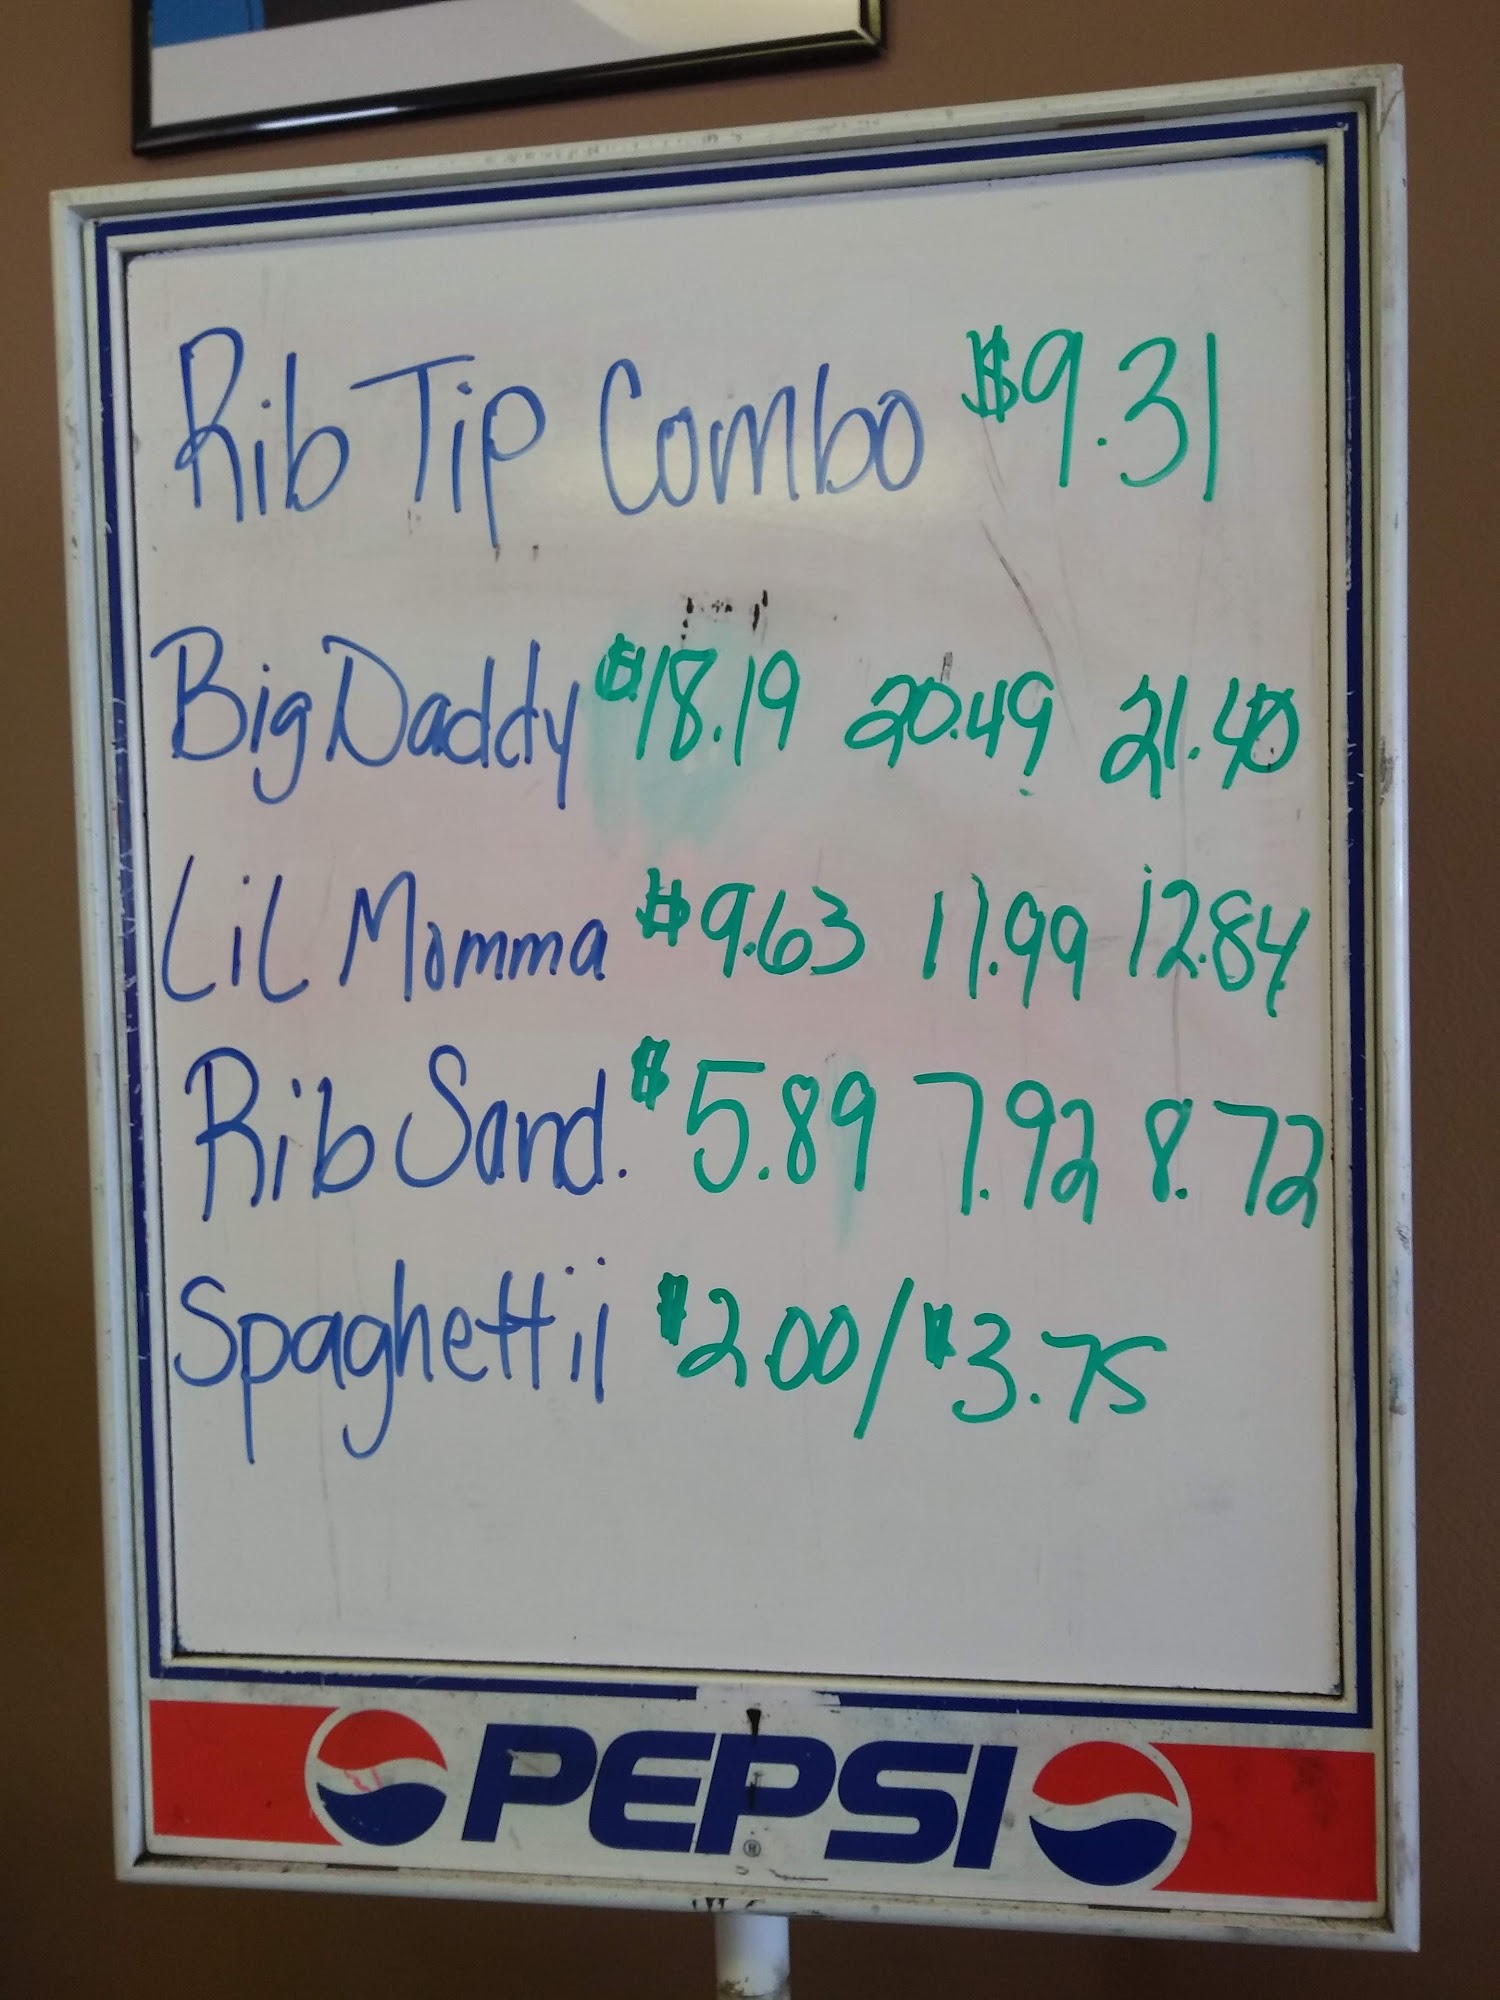 Rib Tip Combo $9.31
Big Daddy $18.19 20.49 21.40
LiL Momma $9.63 11.99 12.84
Rib Sand. $5.89 7.92 8.72
Spaghettii $2.00/$3.75
PEPSI®